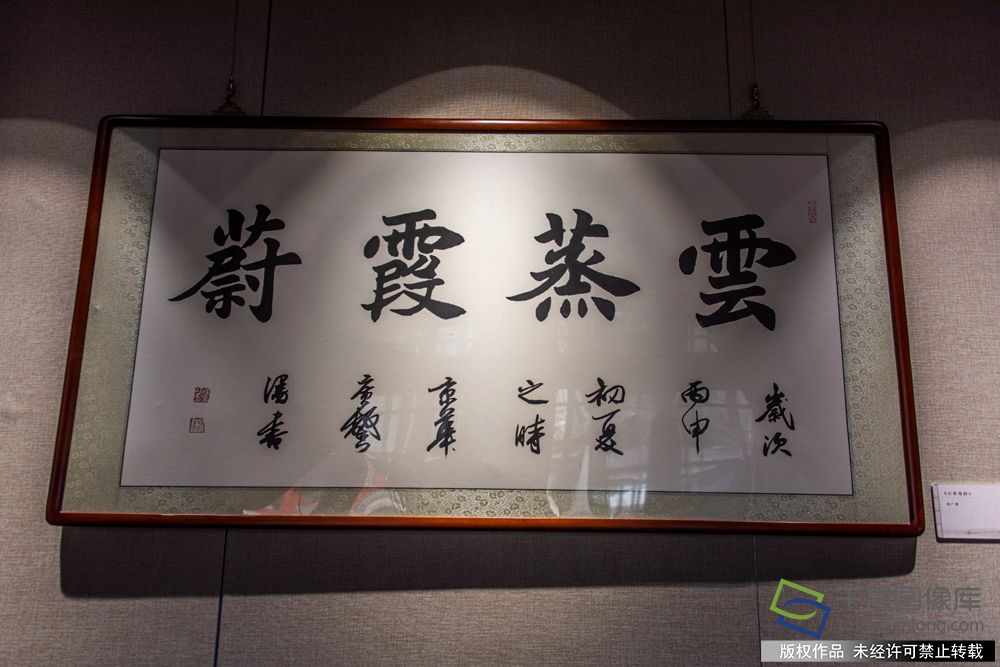 雲蒸霞蔚
歲次
丙申
初夏
之時
京華
漫書
《云蒸霞蔚》
图像库
版权作品 未经许可禁止转载